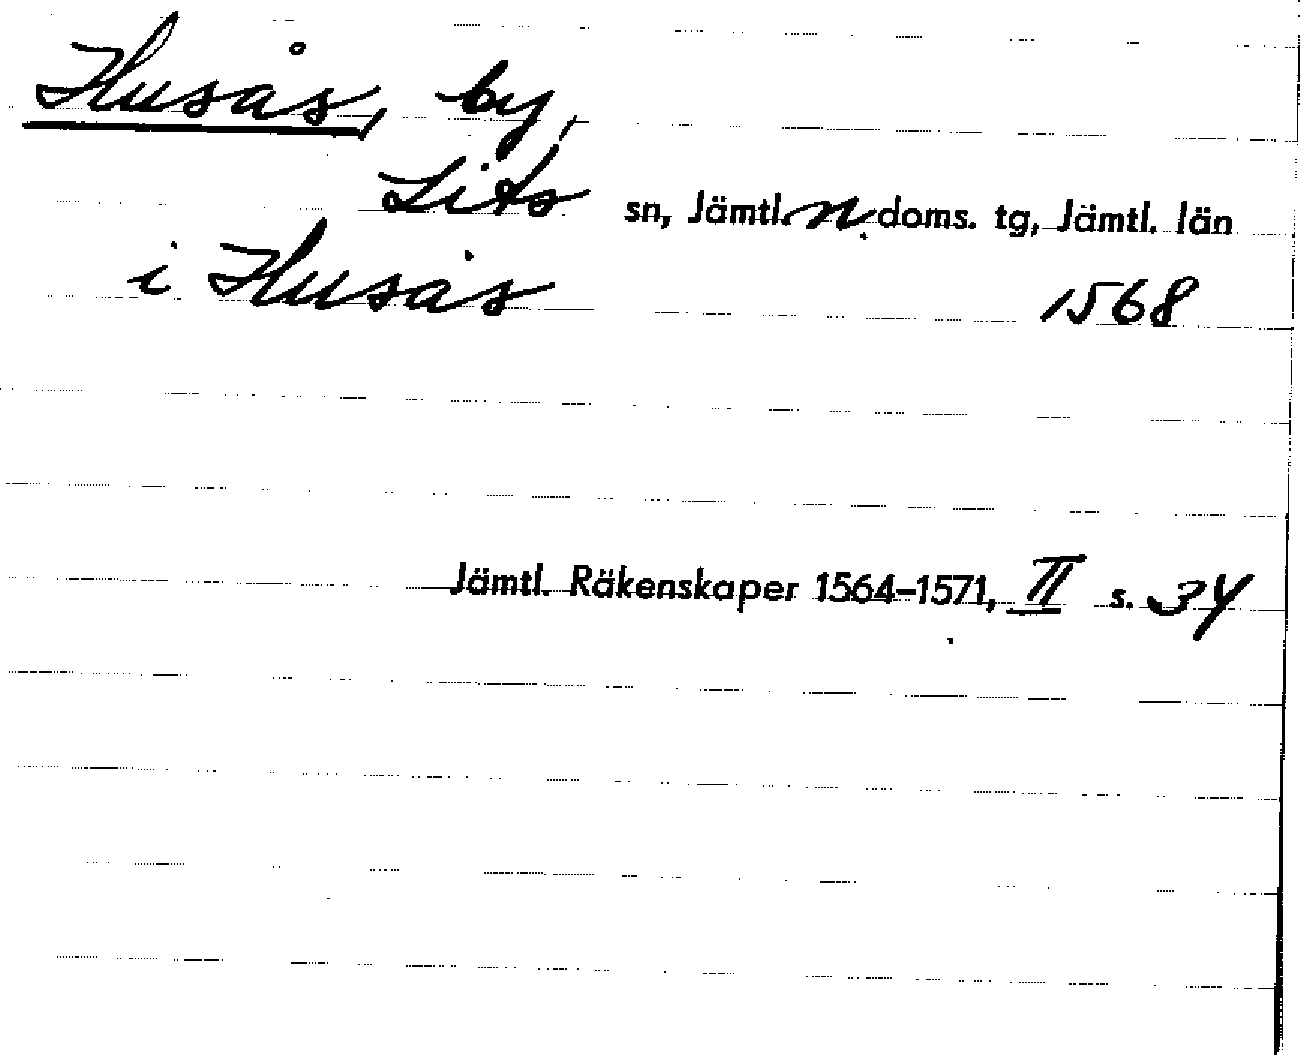 Husås, by,
Lits sn, Jämtl. n. doms. tg, Jämtl. län
i Husås 1568
Jämtl. Räkenskaper 1564–1571, II s. 34